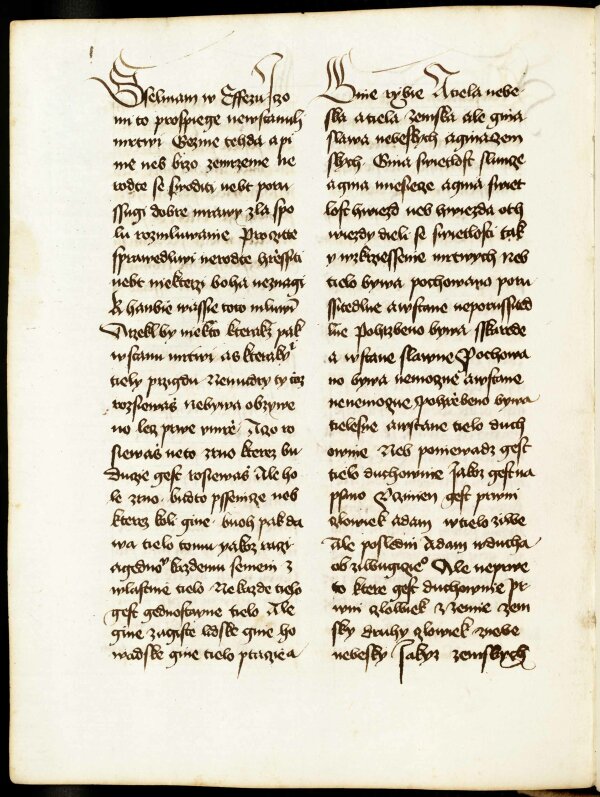 Sselmam w Effezu Czo
mi to prospiege newstanuli
mrtwi Gezme tehda a pi
me neb brzo zemrzeme ne
rodte se swoditi nebt poru
ssugi dobre mrawy zla spo
lu rozmluwanie Procitte
sprawedliwi nerodte hrzessiti
nebt niekterzi boha neznagi
K hanbie wassie toto mluwim
A rzekl by niekto kterakz pak
wstanu mrtwi a s kterakym
tiely przigdu Nemudry ty coz
rozsiewass nebywa obzywe
no lecz prwe umrze A czo ro
siewass ne to zrno kterez bu
ducze gest rosiewass Ale ho
le zrno budto pssenicze neb
kterez koli gine buoh pak da
wa tielo tomu yakoz raczi
a gednomu kazdemu semeni z
wlastnie tielo Ne kazde tielo
gest gednostayne tielo Ale
gine zagiste lidske gine ho
wadske gine tielo ptaczie a
Gine rybie A tiela nebe
ska a tiela zemska ale gina
slawa nebeskych a gina zem
skych Gina swietlost slunce
a gina miesiecze a gina swiet
lost hwiezd neb hwiezda od h
wiezdy dieli se swietlosti tak
y wzkrziessenie mrtwych Neb
tielo bywa pochowano poru
ssitedlne a wstane neporussited
lne Pohrzbeno bywa sskarede
a wstane slawne Pochowa
no bywa nemoczne a wstane
nenemoczne Pohrzebeno bywa
tielesne a wstane tielo duch
ownie Neb poniewadz gest
tielo duchownie Jakoz gest na
psano Uczinien gest prwni
czlowiek adam w tielo ziwe
Ale posledni Adam w ducha
obziwugicieho Ale neprwe
to ktere gest duchownie Pr
wni czlowiek z zemie zem
sky druhy czlowiek z nebe
nebesky Jakyz zemskych